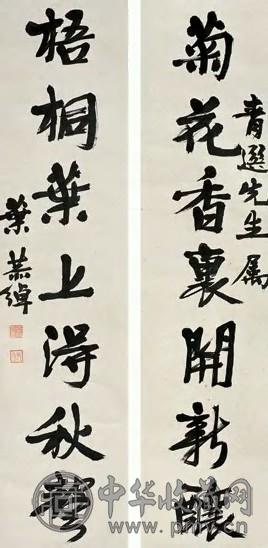 青選先生属
菊花香裏開新釀
梧桐葉上得秋聲
葉恭綽
中华收藏网